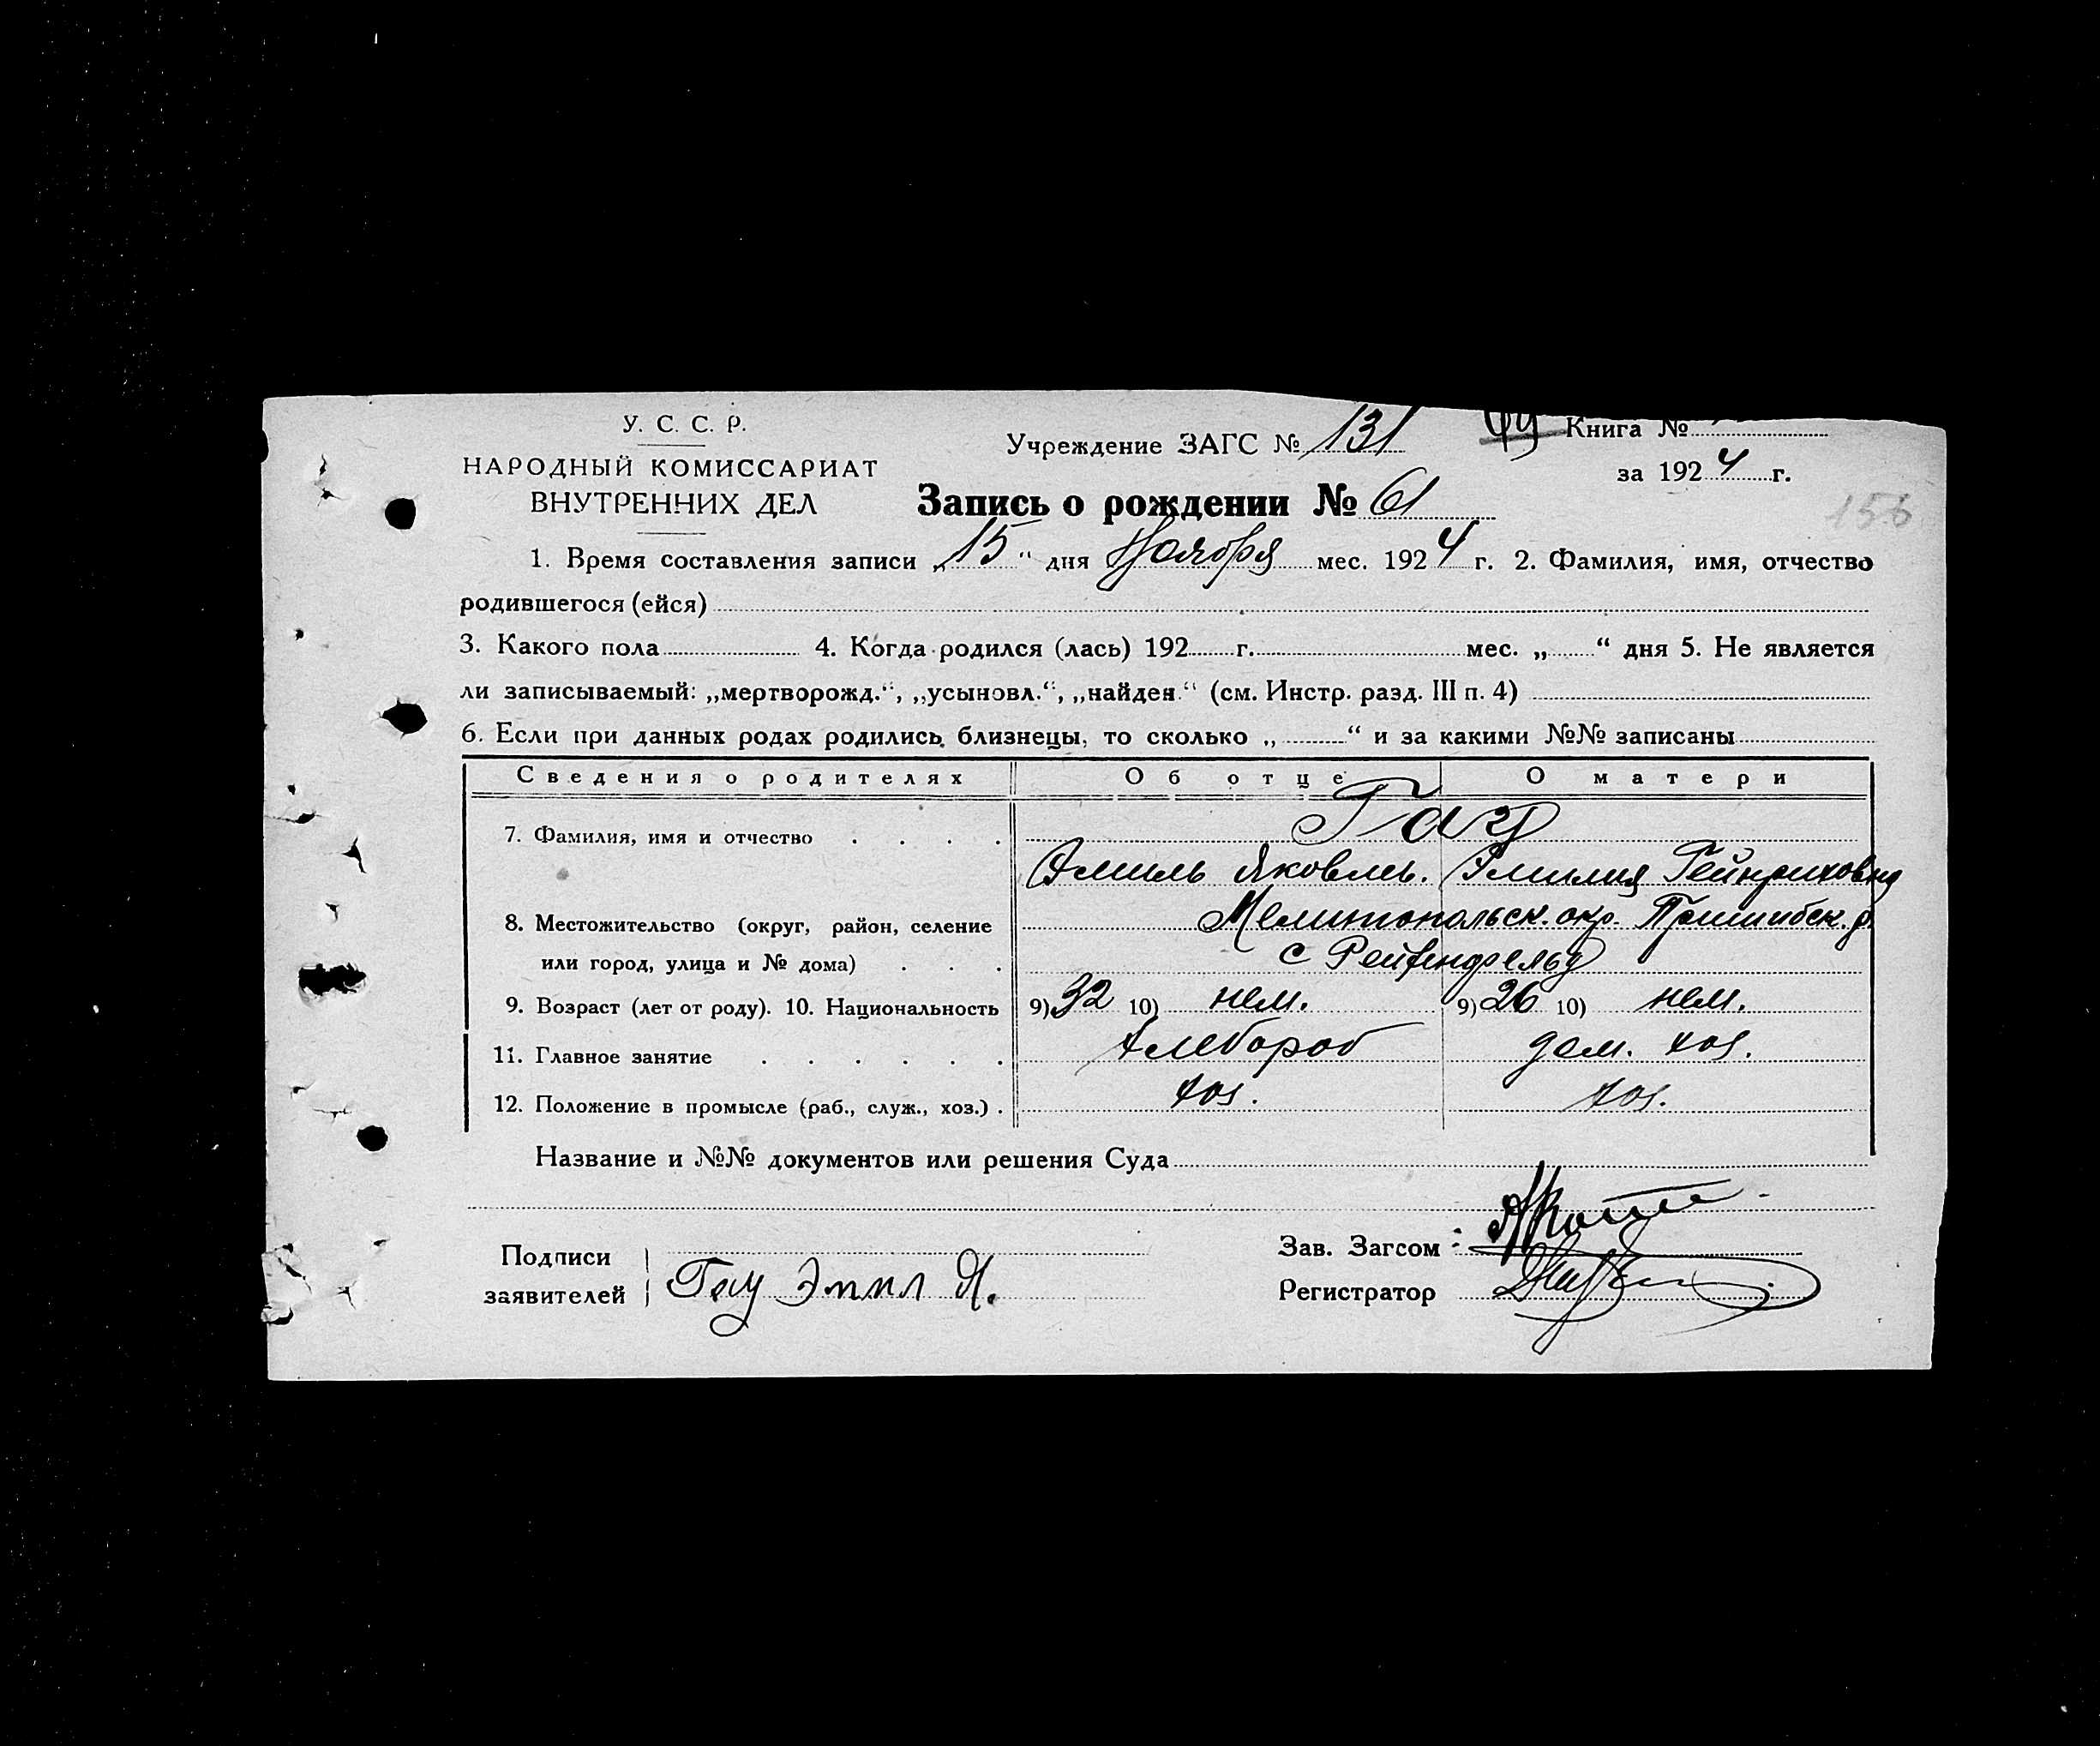 У. С. С. Р.
НАРОДНЫЙ КОМИССАРИАТ
ВНУТРЕННИХ ДЕЛ
Учреждение ЗАГС № 131
Книга №
за 1924 г.
156
Запись о рождении № 61
1. Время составления записи „15“ дня Ноября мес. 1924 г. 2. Фамилия, имя, отчество
родившегося (ейся)
3. Какого пола 4. Когда родился (лась) 192 г. мес. „ “ дня 5. Не является
ли записываемый: „мертворожд.“, „усыновл.“, „найден.“ (см. Инстр. разд. III п. 4)
6. Если при данных родах родились близнецы, то сколько „ “ и за какими №№ записаны
Сведения о родителях Об отце О матери
7. Фамилия, имя и отчество . . . . Гау
Эмиль Яковлев. Эмилия Гейнриховна
8. Местожительство (округ, район, селение Мелитопольск. окр. Пришибск. р.
или город, улица и № дома) . . . с Рейхенфельд
9. Возраст (лет от роду). 10. Национальность 9) 32 10) нем. 9) 26 10) нем.
11. Главное занятие . . . . . . Хлебороб дом. хоз.
12. Положение в промысле (раб., служ., хоз.) . хоз. хоз.
Название и №№ документов или решения Суда
Подписи
заявителей Гау Эмил Я.
Зав. Загсом
Регистратор